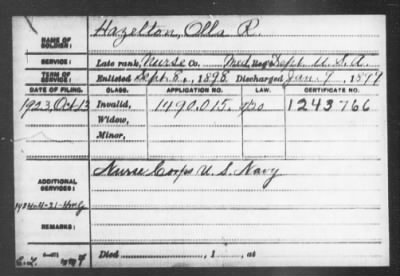 NAME OF SOLDIER: Hazelton, Olla R.
SERVICE: Late rank, Nurse Co. Med. Reg't Dept. U.S.A.
TERM OF SERVICE: Enlisted Sept. 8, 1898 Discharged Jan. 9, 1899
DATE OF FILING. CLASS. APPLICATION NO. LAW. CERTIFICATE NO.
1923, Oct. 13 Invalid, 1490,015. 1243766
Widow,
Minor,
ADDITIONAL SERVICES: Nurse Corps U.S. Navy
REMARKS:
Died , 1 , at